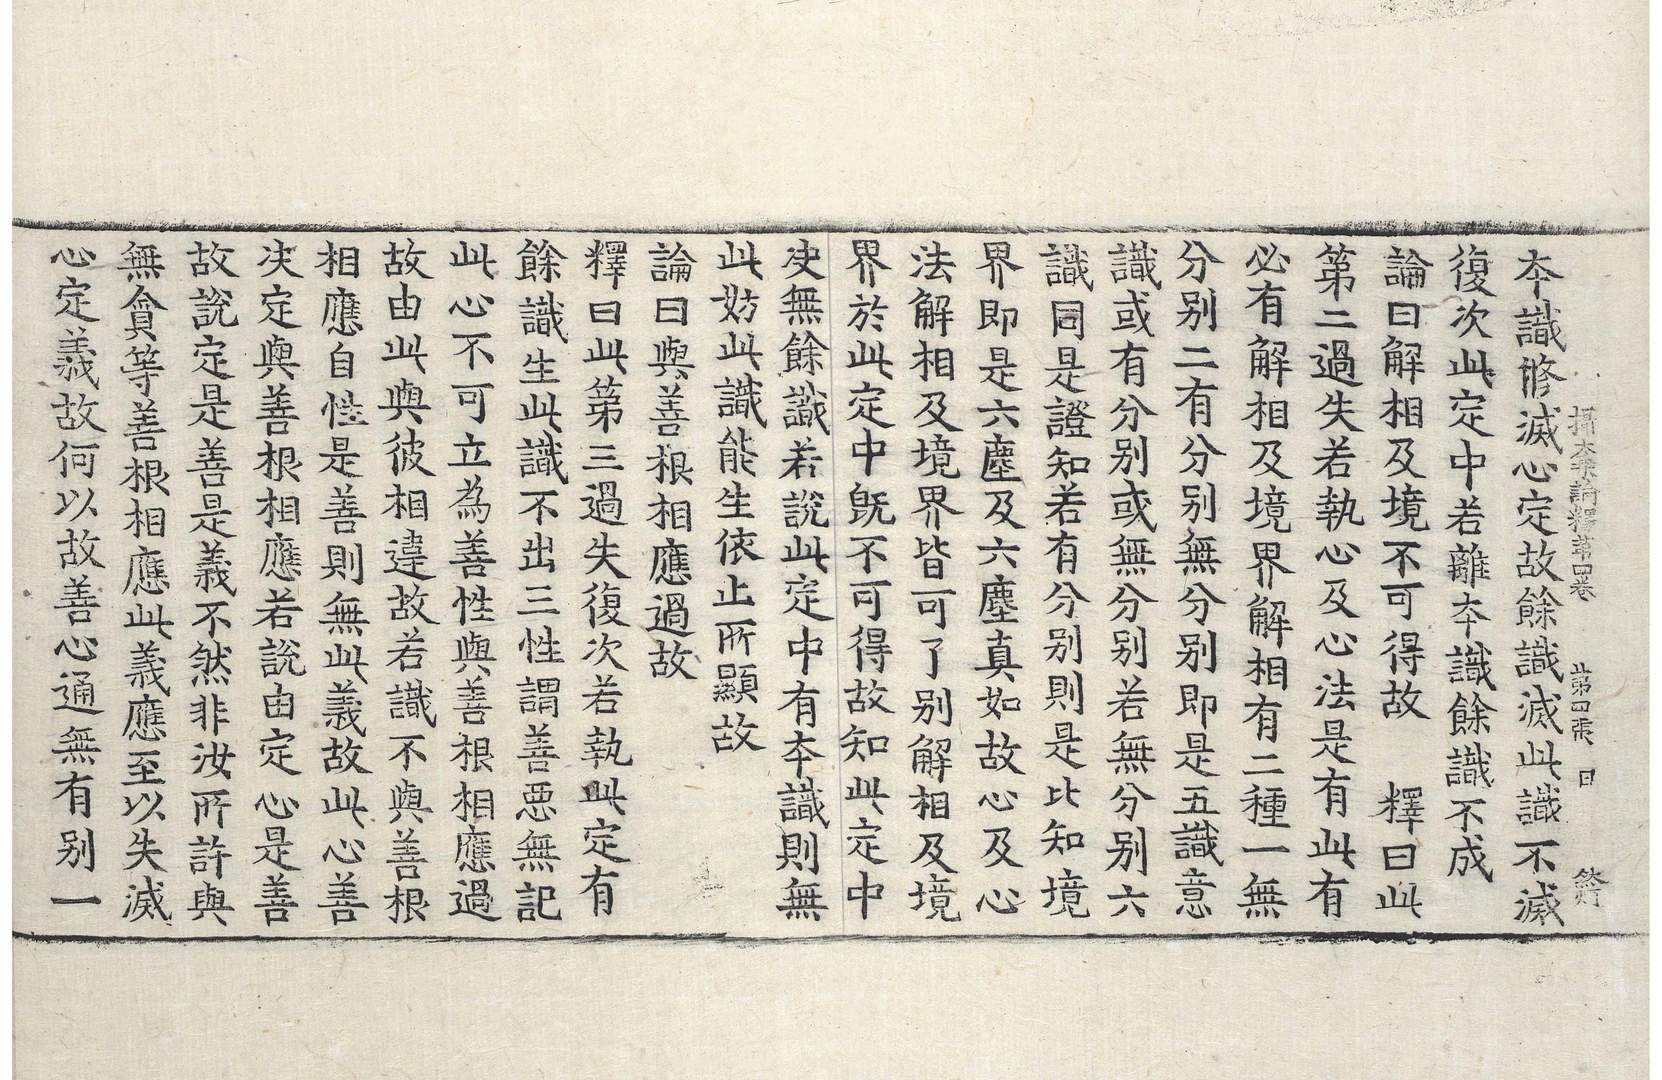 攝大乘論釋第四卷　第四張　日
本識修滅心定故餘識滅此識不滅
復次此定中若離本識餘識不成
論曰解相及境不可得故　釋曰此
第二過失若執心及心法是有此有
必有解相及境界解相有二種一無
分別二有分別無分別即是五識意
識或有分別或無分別若無分別六
識同是證知若有分別則是比知境
界即是六塵及六塵真如故心及心
法解相及境界皆可了別解相及境
界於此定中旣不可得故知此定中
决無餘識若說此定中有本識則無
此妨此識能生依止所顯故
論曰與善根相應過故
釋曰此第三過失復次若執此定有
餘識生此識不出三性謂善惡無記
此心不可立為善性與善根相應過
故由此與彼相違故若識不與善根
相應自性是善則無此義故此心善
决定與善根相應若說由定心是善
故說定是善是義不然非汝所許與
無貪等善根相應此義應至以失滅
心定義故何以故善心通無有別一